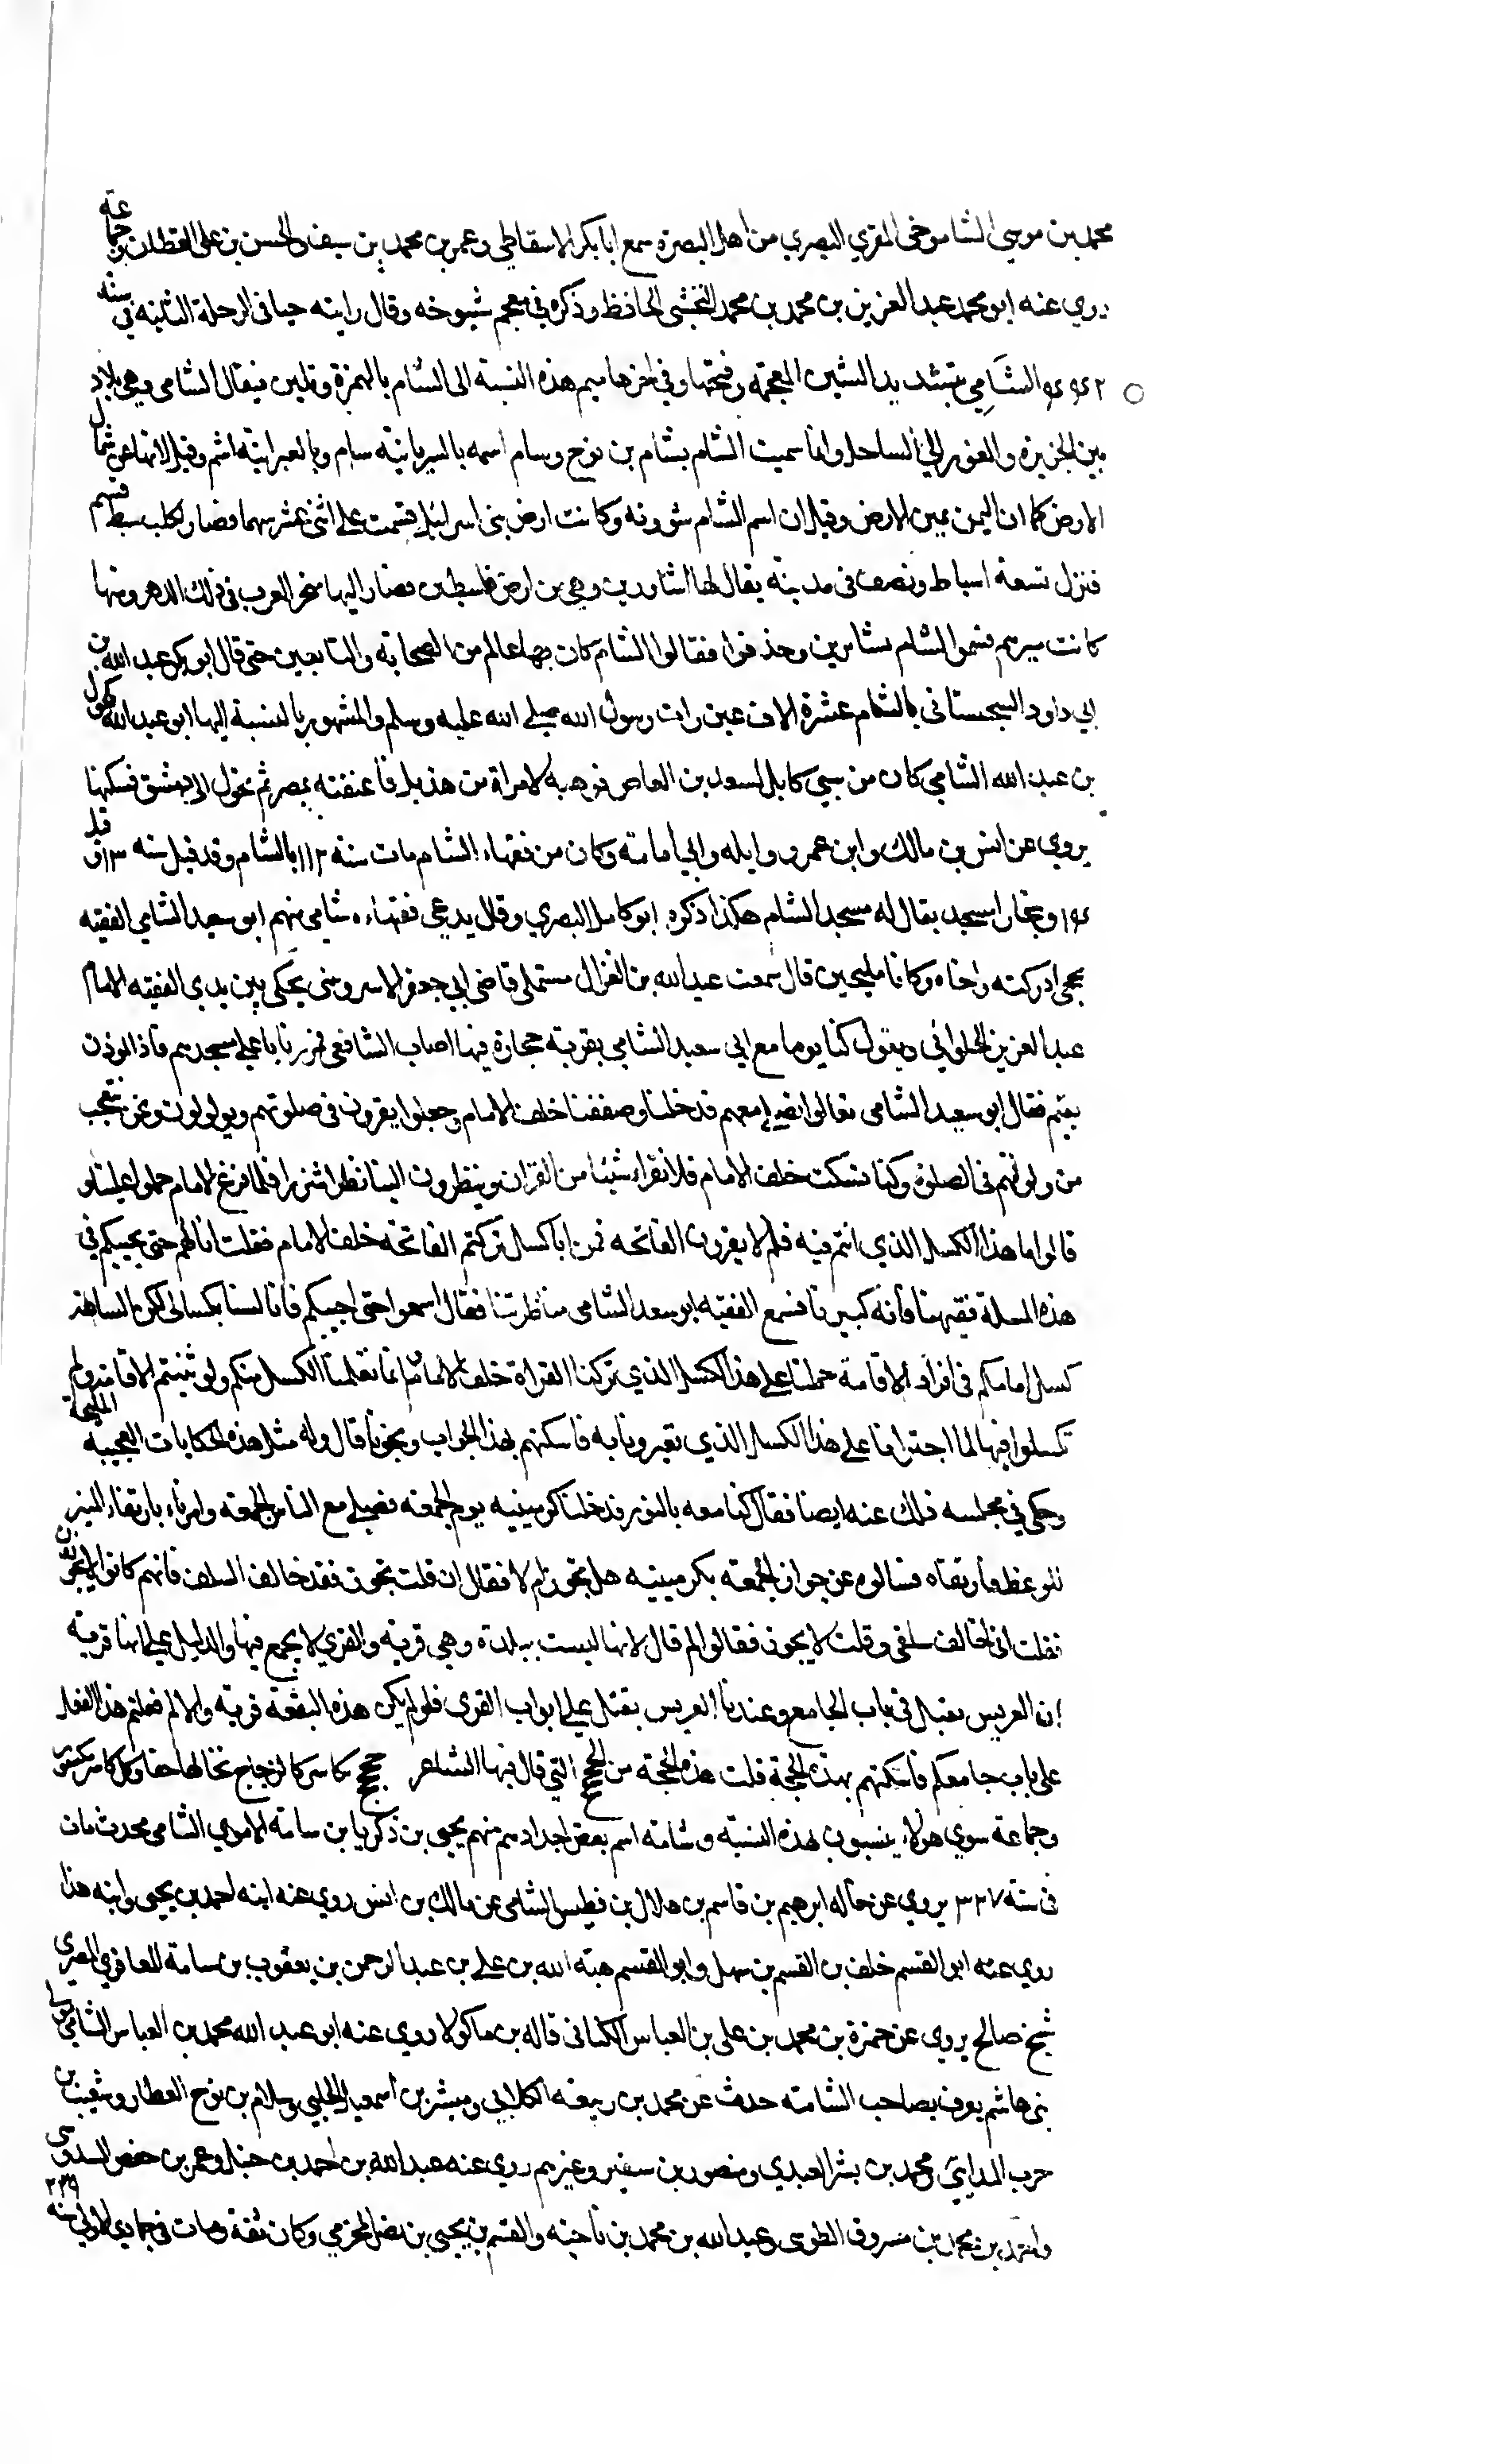 محمد بن موسى الشاموخى المقري البصري من اهل البصرة سمع ابا بكر الاسفاطي وعمر بن محمد بن سيف والحسن بن على القطان وجماعة
روي عنه ابو محمد عبد العزيز بن محمد بن محمد النخشبى الحافظ وذكره في معجم شيوخه وقال رايته حيا فى الرحلة الثانيه في سنه
الشَامِي بتشديد الشين المعجمه وفتحها وفي اخرها ميم هذه النسبة الى الشام بالهمزة وتلين فيقال الشامى وهى بلاد
بين الجزيرة والغور الى الساحل وانما سميت الشام بشام بن نوح وسام اسمه بالسريانية سام وبالعبرانية اشم وقيل لانها عن شمال
الارض كما ان اليمن يمين الارض وقيل ان اسم الشام سورنه وكانت ارض بنى اسرائيل قسمت على اثنى عشر سهما فصار لكل سبط قسم
فنزل تسعة اسباط ونصف فى مدينه يقال لها الشاورين وهى من ارض فلسطين فصار اليها متجر العرب فى ذلك الدهر ومنها
كانت ميرتهم فسموا الشام بشامرين وحذفوا فقالوا الشام كان بها عالم من الصحابة والتابعين حتى قال ابو بكر عبد الله بن
ابي داود السجستانى بالشام عشرة الاف عين رات رسول الله صلى الله عليه وسلم والمشهور بالنسبة اليها ابو عبد الله مكحول
بن عبد الله الشامي كان من سبي كابل لسعيد بن العاص فوهبه لامراة من هذيل فاعتقته بمصر ثم تحول الى دمشق فسكنها
يروي عن انس بن مالك وابن عمر و واثله وابي امامة وكان من فقهاء الشام مات سنه ١١٢ بالشام وقد قيل سنه ١١٣ وقد قيل
وبخارا مسجد يقال له مسجد الشام هكذا ذكره ابو كامل البصري وقال يدعى فقهاءه شامى منهم ابو سعيد الشامي الفقيه
يحى ادركته واخاه وكانا مليحين قال سمعت عبد الله بن الغزال مستملى قاضى ابي جعفر الاسروشنى يحكى بين يدي الفقيه الامام
عبد العزيز الحلوانى ويقول كنا يوما مع ابي سعيد الشامى بقرية حجارة فيها اصاب الشافعى فمررنا على مسجدهم فاذا الموذن
يقيم فقال ابو سعيد الشامى تعالوا نصلى معهم فدخلنا وصففنا خلف الامام وجعلوا يقرون فى صلوتهم ويولولون ونحن نتعجب
من ولولتهم فى الصلوة وكنا نسكت خلف الامام فلا نقراء شيئا من القران وينظرون الينا نظرا شزرا فلما فرغ الامام حملوا علينا و
قالوا ما هذا الكسل الذي انتم فيه فلم لا يقرون الفاتحه تركتم الفاتحة خلف الامام فقلت انا لهم حتى يجيبكم في
هذه المسلة فقيهنا فانه كبيرنا فسمع الفقيه ابو سعد الشامى مناظرتنا فقال اسمعوا حتى اجيبكم فانا لسنا بكسالى لكن
كسل امامكم فى افراد الاقامة حملنا على هذا الكسل الذي تركنا القراة خلف الامام انما تعلمنا الكسل منكم ولو ثنيتم الاقامة ولم
تكسلوا فيها لما اجترانا على هذا الكسل الذي تعيرونا به فاسكتهم بهذا الجواب ونجونا قال وله مثل هذه الحكايات العجيبه المليحة
وحكى في مجلسه ذلك عنه ايضا فقال كنا معه بالنور فدخلنا كرمينيه يوم الجمعه فصلى مع الناس الجمعه وامرناه بارتقاء المنبر
للوعظ فارتقاه فسالوه عن جواز الجمعه بكرمينيه هل يجوز ام لا فقال ان قلت يجوز فقد خالف السلف فانهم كانوا لا يجوزون
فقلت انى اخالف سلفى وقلت لا يجوز فقالوا لم قال لانها ليست ببلدة وهى قرية والقري لا يجمع فيها والدليل على انها قرية
ان العريس يقبل فى باب الجامع وعندنا العريس يقبل على ابواب القرى فلو لم يكن هذه البقعة قرية والا لم فعلتم هذا الفعل
على باب جامعكم فاسكتهم بهذه الحجة قلت هذه الحجة من الحجج التي قال فيها الشاعر حجج تكاسر كالزجاج تخالها حقا وكل كاسر مكسور
وجماعة سوي هولاء ينسبون بهذه النسبه وشامة اسم بعض اجدادهم منهم يحيى بن زكريا بن سامة الاموي الشامى محدث مات
فى سنة ٣٣٧ يروي عن خاله ابرهيم بن قاسم بن هلال بن فطيس الشامى عن مالك بن انس روي عنه ابنه احمد بن يحيى وابنه هذا
روي عنه ابو القسم خلف بن القسم بن سهل وابو القسم هبة الله بن على بن عبد الرحمن بن يعقوب بن سامة المعافري المصري
شيخ صالح يروي عن حمزة بن محمد بن على بن العباس الكنانى قاله بن ماكولا روي عنه ابو عبد الله محمد بن العباس الشامى مولى
بنى هاشم يعرف بصاحب الشامة حدث عن محمد بن ربيعه الكلابي ومبشر بن اسمعيل الحلبي وسلام بن نوح العطار وشعيب بن
حرب المدايني ومحمد بن بشر العبدي ومنصور بن سقير وغيرهم روي عنه عبد الله بن احمد بن حنبل وعمر بن حفص السدوسى
واحمد بن محمد بن مسروق الطوسى وعبد الله بن محمد بن ناجيه والقسم بن يحيى بن نصر المخرمي وكان ثقة ومات فى جمادي الاولى سنه ٢٣٩